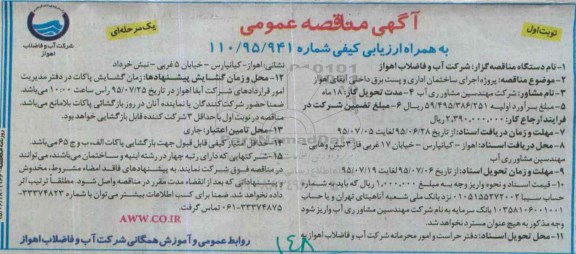 نوبت اول
آگهی مناقصه عمومی
یک مرحله‌ای
به همراه ارزیابی کیفی شماره ۱۱۰/۹۵/۹۴۱
شرکت آب و فاضلاب
اهواز
۱-نام دستگاه مناقصه گزار: شرکت آب و فاضلاب اهواز
۲-موضوع مناقصه: پروژه اجرای ساختمان اداری و پست برق داخلی آبفای اهواز
۳-نام مشاور: شرکت مهندسین مشاوری آب ۴-مدت تحویل کار: ۱۸ ماه
۵-مبلغ برآورد اولیه ۵۹/۴۹۵/۳۸۶/۲۵۱ ریال ۶-مبلغ تضمین شرکت در
فرایند ارجاع کار: ۲,۳۹۰,۰۰۰,۰۰۰ ریال
۷-مهلت و زمان دریافت اسناد: از ۹۵/۰۶/۲۸ لغایت ۹۵/۰۷/۰۵
۸-محل دریافت اسناد: اهواز - کیانپارس - خیابان ۱۷ غربی فاز ۳ نبش وهابی
مهندسین مشاوری آب
۹-مهلت و زمان تحویل اسناد: از تاریخ ۹۵/۰۷/۰۶ لغایت ۹۵/۰۷/۱۹
۱۰-قیمت اسناد و نحوه واریز وجه به مبلغ ۱,۰۰۰,۰۰۰ ریال که باید به شماره
حساب سیبا ۰۱۰۵۱۵۵۲۷۳۰۰۲ نزد بانک ملی شعبه آناهیتای تهران و یا حساب
۱۰۳۵۸۱۰۶۰۰۱۰۰۱ بانک سرمایه به نام شرکت مهندسین مشاوری آب واریز شود
وجه مذکور به هیچ عنوان مسترد نخواهد شد.
۱۱-محل تحویل اسناد: دفتر حراست و امور محرمانه شرکت آب و فاضلاب اهواز به
نشانی: اهواز - کیانپارس - خیابان ۵ غربی - نبش خرداد
۱۲-محل و زمان گشایش پیشنهادها: زمان گشایش پاکات در دفتر مدیریت
امور قراردادهای شرکت آبفا اهواز در تاریخ ۹۵/۰۷/۲۵ راس ساعت ۱۰:۰۰ می‌باشد.
ضمنا حضور شرکت کنندگان یا نماینده آنان در روز بازگشائی پاکات بلامانع می‌باشد.
مناقصه در نوبت اول با حداقل ۳ شرکت کننده قابل بازگشایی خواهد بود.
۱۳-محل تامین اعتبار: جاری
۱۴-حداقل امتیاز کیفی قابل قبول جهت بازگشایی پاکات الف، ب و ج ۶۵ می‌باشد.
۱۵-شرکتهایی که دارای رتبه چهار در رشته ابنیه و ساختمان می‌باشند، می‌توانند
در مناقصه فوق شرکت نمایند. به پیشنهادهای فاقد امضاء مشروط، مخدوش
و پیشنهاداتی که بعد از انقضاء مدت مقرر در مناقصه واصل شود. مطلقا ترتیب اثر
داده نخواهد شد. ضمنا برای کسب اطلاعات بیشتر می‌توان با شماره ۳۳۳۷۴۸۲۳
و ۳۳۳۷۴۸۷۵-۰۶۱ تماس گرفت.
AWW.CO.IR
روابط عمومی و آموزش همگانی شرکت آب و فاضلاب اهواز
۱۴۸